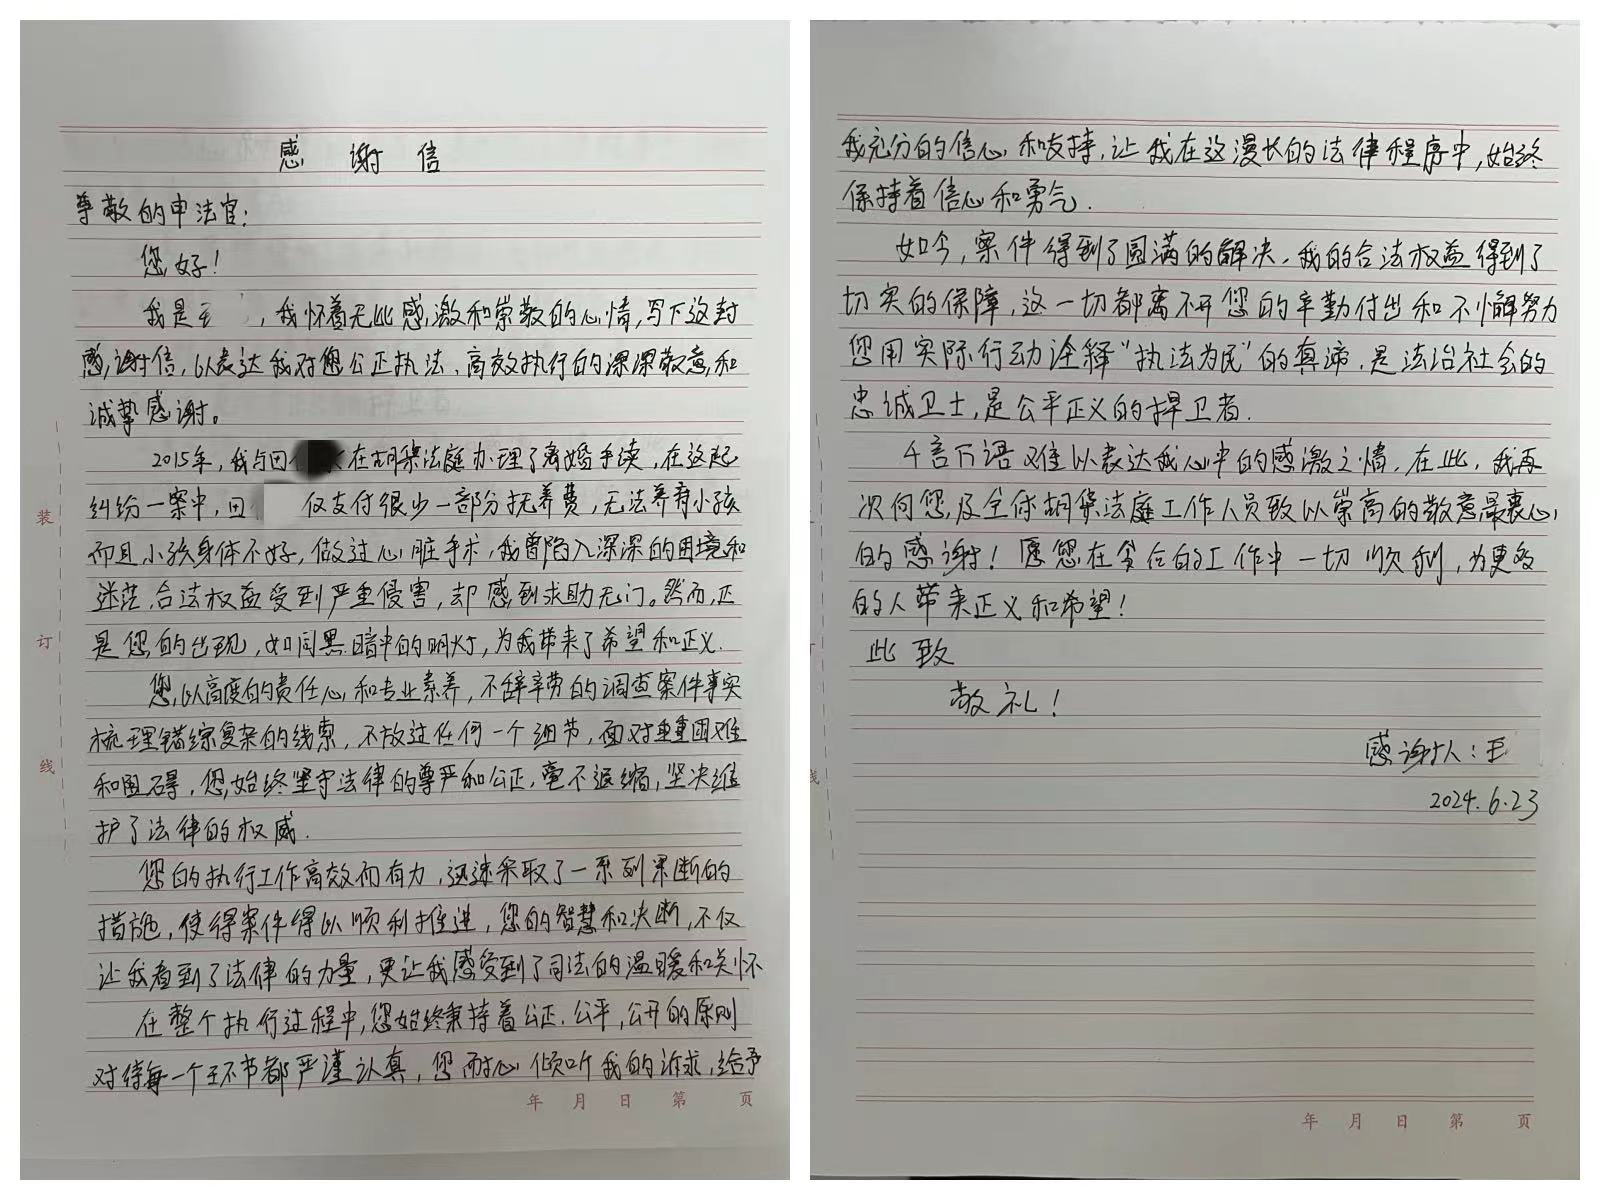 感谢信
尊敬的申法官:
您好!
我是王 ,我怀着无比感激和崇敬的心情,写下这封
感谢信,以表达我对您公正执法、高效执行的深深敬意和
诚挚感谢。
2015年,我与田 在胡集法庭办理了离婚手续,在这起
纠纷一案中,田 仅支付很少一部分抚养费,无法养育小孩
而且小孩身体不好,做过心脏手术,我曾陷入深深的困境和
迷茫,合法权益受到严重侵害,却感到求助无门。然而,正
是您的出现,如同黑暗中的明灯,为我带来了希望和正义.
您以高度的责任心和专业素养,不辞辛劳的调查案件事实
梳理错综复杂的线索,不放过任何一个细节,面对重重困难
和阻碍,您始终坚守法律的尊严和公正,毫不退缩,坚决维
护了法律的权威.
您的执行工作高效而有力,迅速采取了一系列果断的
措施,使得案件得以顺利推进,您的智慧和决断,不仅
让我看到了法律的力量,更让我感受到了司法的温暖和关怀
在整个执行过程中,您始终秉持着公正.公平,公开的原则
对待每一个环节都严谨认真,您耐心倾听我的诉求,给予
装
订
线
年 月 日 第 页
我充分的信心和支持,让我在这漫长的法律程序中,始终
保持着信心和勇气.
如今,案件得到了圆满的解决、我的合法权益得到了
切实的保障,这一切都离不开您的辛勤付出和不懈努力
您用实际行动诠释“执法为民”的真谛,是法治社会的
忠诚卫士,是公平正义的捍卫者.
千言万语难以表达我心中的感激之情,在此,我再
次向您及全体胡集法庭工作人员致以崇高的敬意最衷心
的感谢!愿您在今后的工作中一切顺利,为更多
的人带来正义和希望!
此致
敬礼!
感谢人:王
2024.6.23
线
年 月 日 第 页